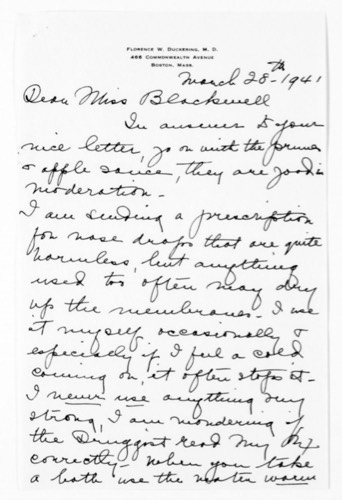 FLORENCE W. DUCKERING, M. D.
468 COMMONWEALTH AVENUE
BOSTON, MASS.
March 28th-1941
Dear Miss Blackwell
In answer to your
nice letter, go on with the prunes
& apple sauce, they are good in
moderation-
I am sending a prescription
for nose drops that are quite
harmless, but anything
used too often may dry
up the membranes- I use
it myself occasionally &
especially if I feel a cold
coming on, it often stops it-
I never use anything very
strong, I am wondering if
the Druggist read my
correctly- When you take
a bath use the water warm